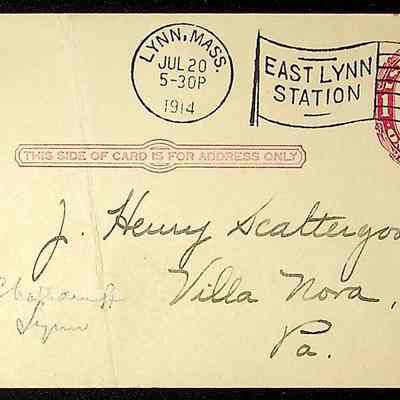 LYNN, MASS.
JUL 20
5-30P
1914
EAST LYNN
STATION
1
THIS SIDE OF CARD IS FOR ADDRESS ONLY
J. Henry Scattergoo
Villa Nova,
Pa.
Lynn